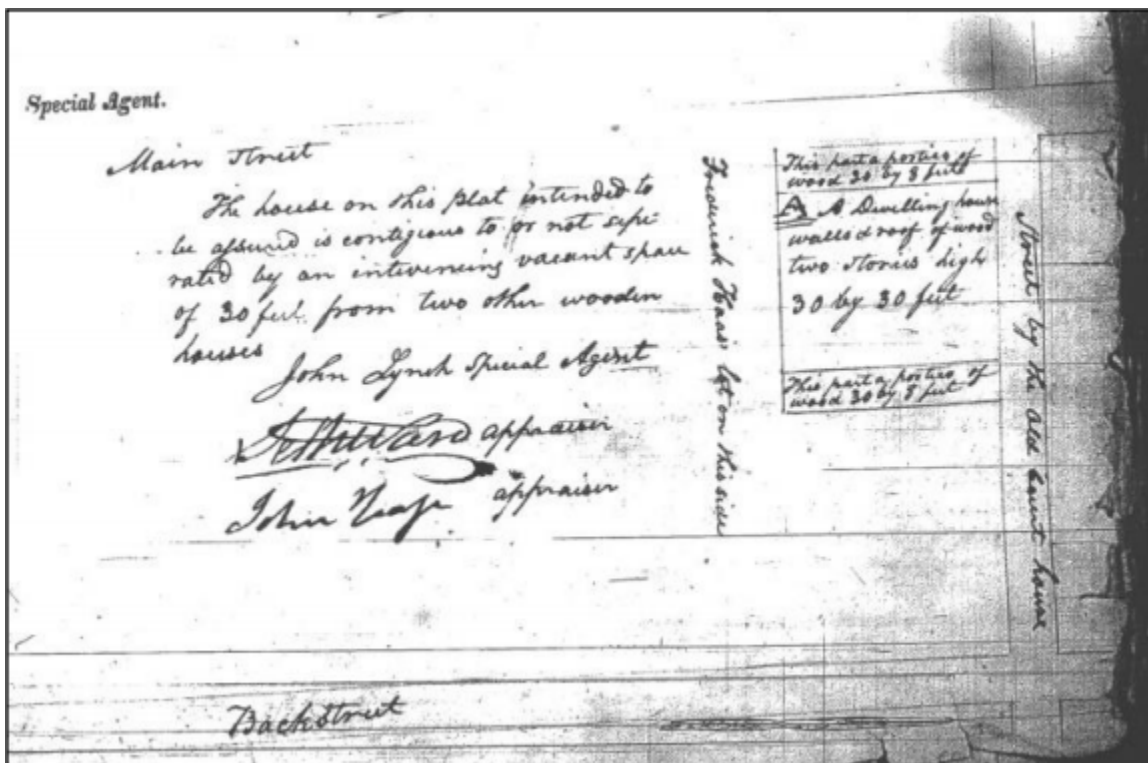 Special Agent.
Main Street
The house on this plat intended to
be assured is contigious to or not sepe-
rated by an intervening vacant space
of 30 feet from two other wooden
houses
John Lynch Special Agent
appraiser
John appraiser
Frederick Haas's lot on this side
This part a portico of
wood 30 by 8 feet
A A Dwelling house
walls & roof of wood
two stories high
30 by 30 feet
This part a portico of
wood 30 by 8 feet
Street by the old court house
Backstreet